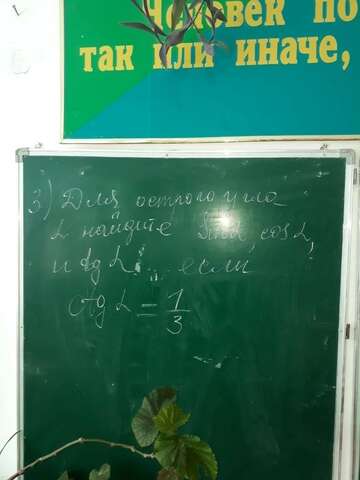 Человек по
так или иначе,
3) Для острого угла
α найдите sinα, cosα,
и tgα, если
ctgα = 1/3